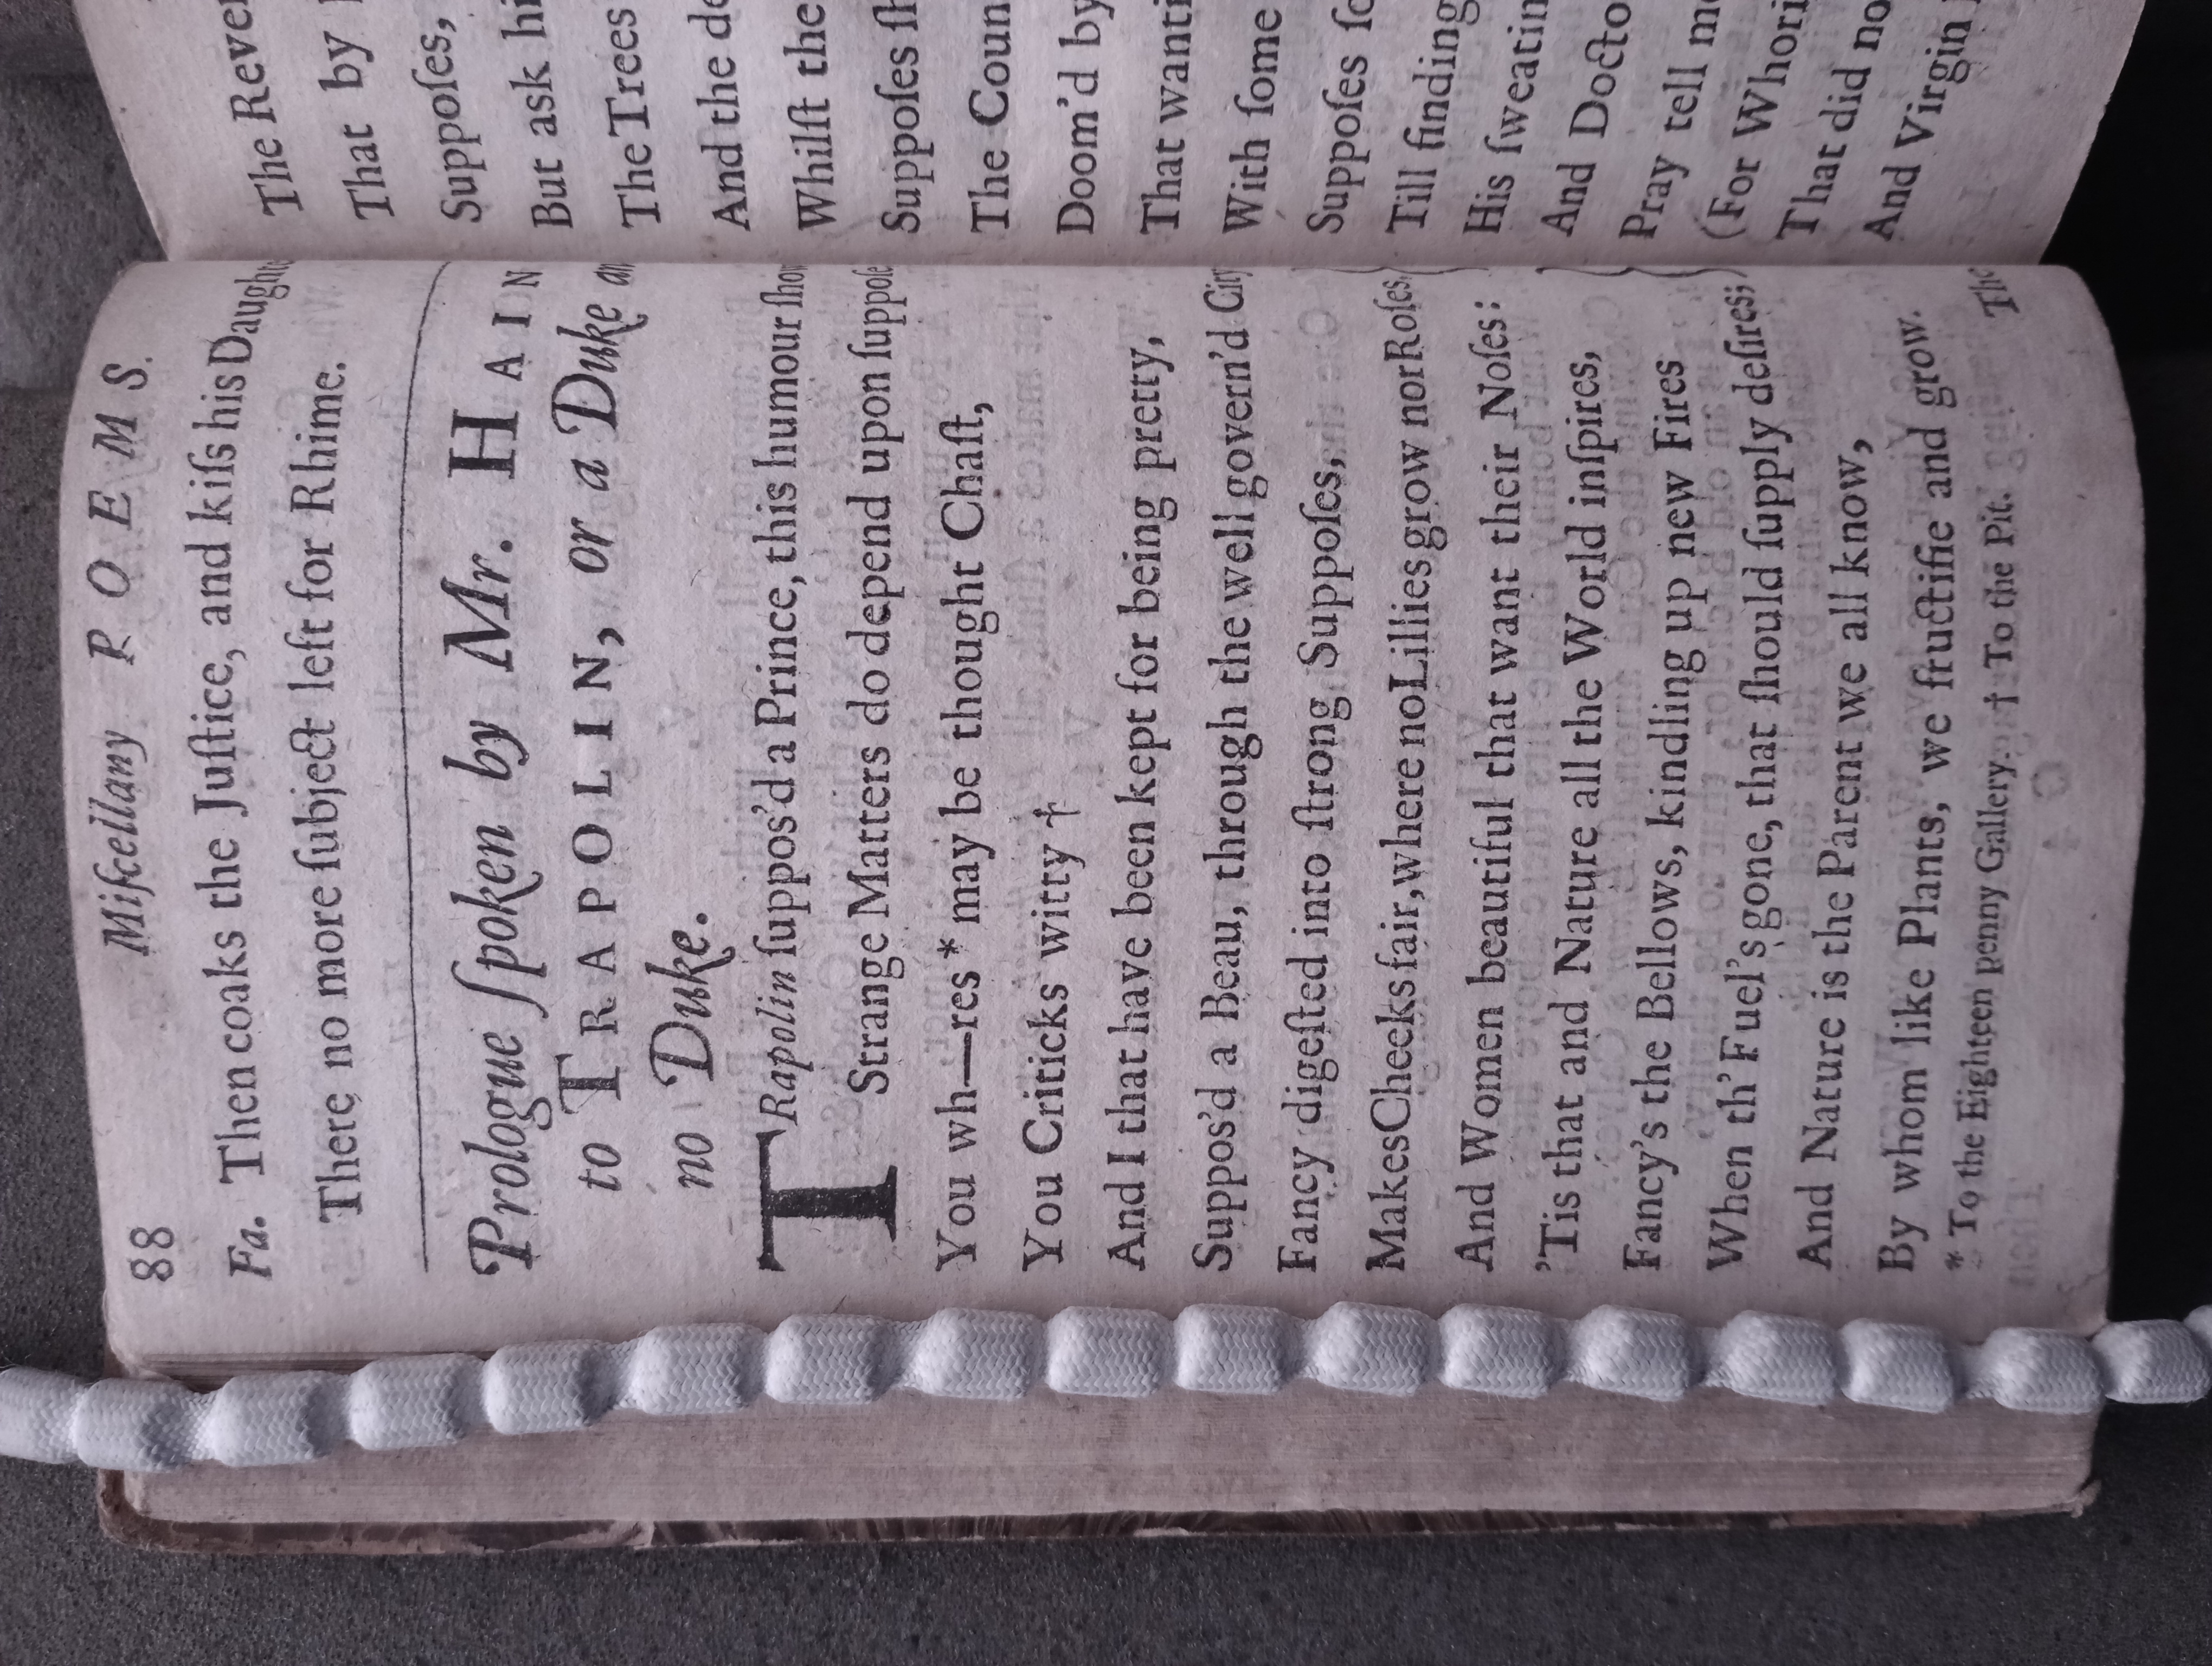 88 Miſcellany POEMS.
Fa. Then coaks the Juſtice, and kiſs his Daughte
There no more ſubject left for Rhime.
Prologue ſpoken by Mr. HAIN
to TRAPOLIN, or a Duke an
no Duke.
TRapolin ſuppos'd a Prince, this humour ſhow
Strange Matters do depend upon ſuppoſe
You wh—res * may be thought Chaſt,
You Criticks witty †
And I that have been kept for being pretty,
Suppos'd a Beau, through the well govern'd City
Fancy digeſted into ſtrong Suppoſes,
Makes Cheeks fair, where no Lillies grow nor Roſes,
And Women beautiful that want their Noſes:
'Tis that and Nature all the World inſpires,
Fancy's the Bellows, kindling up new Fires
When th' Fuel's gone, that ſhould ſupply deſires;
And Nature is the Parent we all know,
By whom like Plants, we fructifie and grow.
* To the Eighteen penny Gallery. † To the Pit.
The
The Rever
That by
Suppoſes,
But ask hi
The Trees
And the de
Whilſt the
Suppoſes ſh
The Coun
Doom'd by
That wanti
With ſome
Suppoſes ſo
Till finding
His ſweatin
And Docto
Pray tell me
(For Whori
That did no
And Virgin